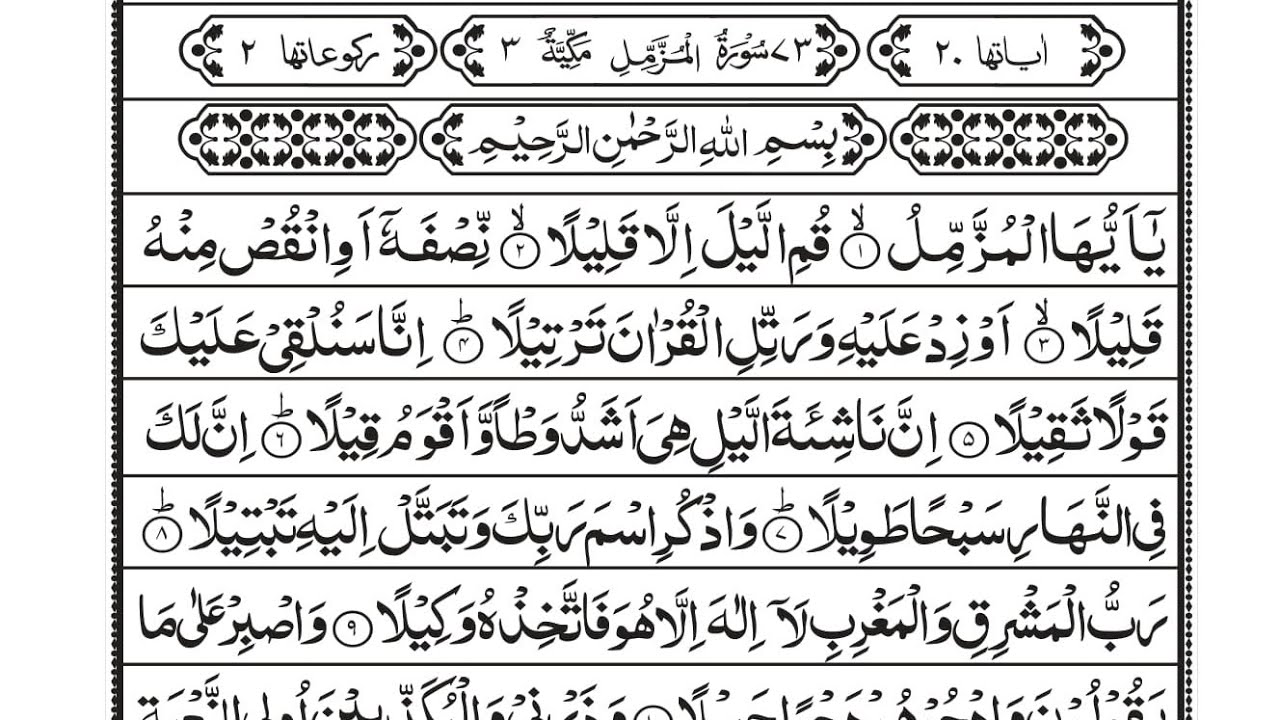 اٰیاتها ٢٠ ٧٣ سُوْرَةُ الْمُزَّمِّلِ مَكِّيَّةٌ ٣ ركوعاتها ٢
بِسْمِ اللهِ الرَّحْمٰنِ الرَّحِيْمِ
يٰۤاَيُّهَا الْمُزَّمِّلُ ۙ﴿١﴾ قُمِ الَّيْلَ اِلَّا قَلِيْلًا ۙ﴿٢﴾ نِّصْفَهٗۤ اَوِ انْقُصْ مِنْهُ
قَلِيْلًا ۙ﴿٣﴾ اَوْ زِدْ عَلَيْهِ وَرَتِّلِ الْقُرْاٰنَ تَرْتِيْلًا ؕ﴿۴﴾ اِنَّا سَنُلْقِيْ عَلَيْكَ
قَوْلًا ثَقِيْلًا ﴿۵﴾ اِنَّ نَاشِئَةَ الَّيْلِ هِيَ اَشَدُّ وَطْاً وَّاَقْوَمُ قِيْلًا ؕ﴿۶﴾ اِنَّ لَكَ
فِي النَّهَارِ سَبْحًا طَوِيْلًا ؕ﴿٧﴾ وَاذْكُرِ اسْمَ رَبِّكَ وَتَبَتَّلْ اِلَيْهِ تَبْتِيْلًا ؕ﴿٨﴾
رَبُّ الْمَشْرِقِ وَالْمَغْرِبِ لَاۤ اِلٰهَ اِلَّا هُوَ فَاتَّخِذْهُ وَكِيْلًا ﴿٩﴾ وَاصْبِرْ عَلٰى مَا
يَقُوْلُوْنَ وَاهْجُرْهُمْ هَجْرًا جَمِيْلًا ﴿١٠﴾ وَذَرْنِيْ وَالْمُكَذِّبِيْنَ اُولِي النَّعْمَةِ